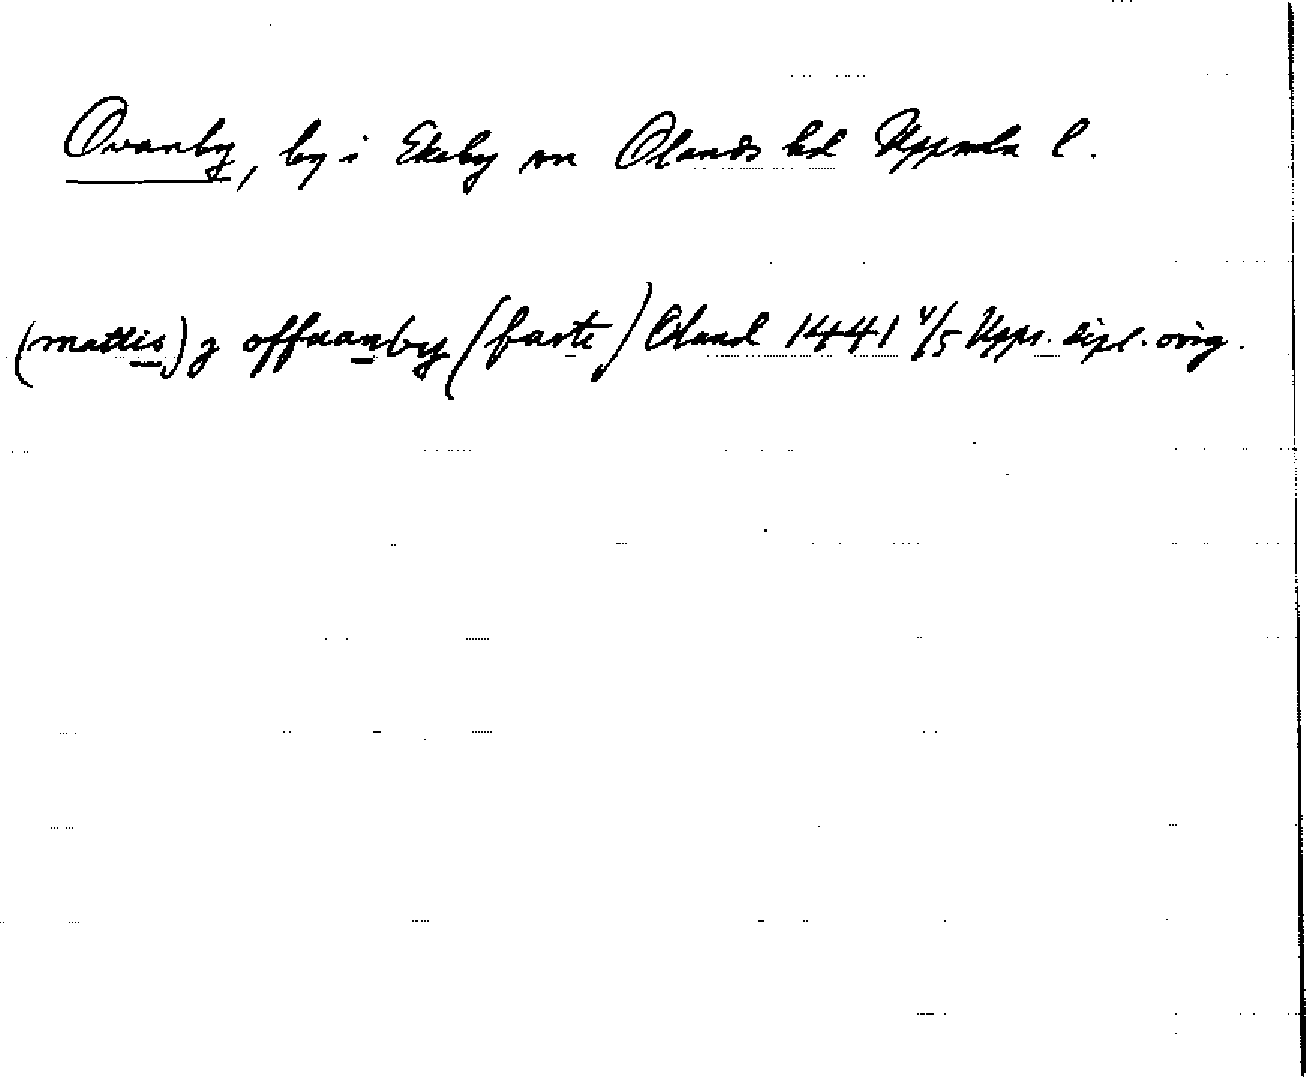 Ovanby, by i Ekeby sn Olands hd Uppsala l.
(mattis) j offuanby (faste) Oland 1441 4/5 Upps. dipl. orig.